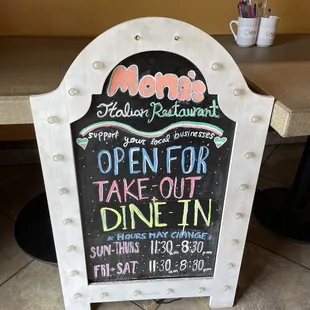 Mona's
Italian Restaurant
support your local businesses
OPEN FOR
TAKE.OUT
DINE IN
* HOURS MAY CHANGE *
SUN-THURS 11:30am-8:30pm
FRI + SAT 11:30am-8:30pm